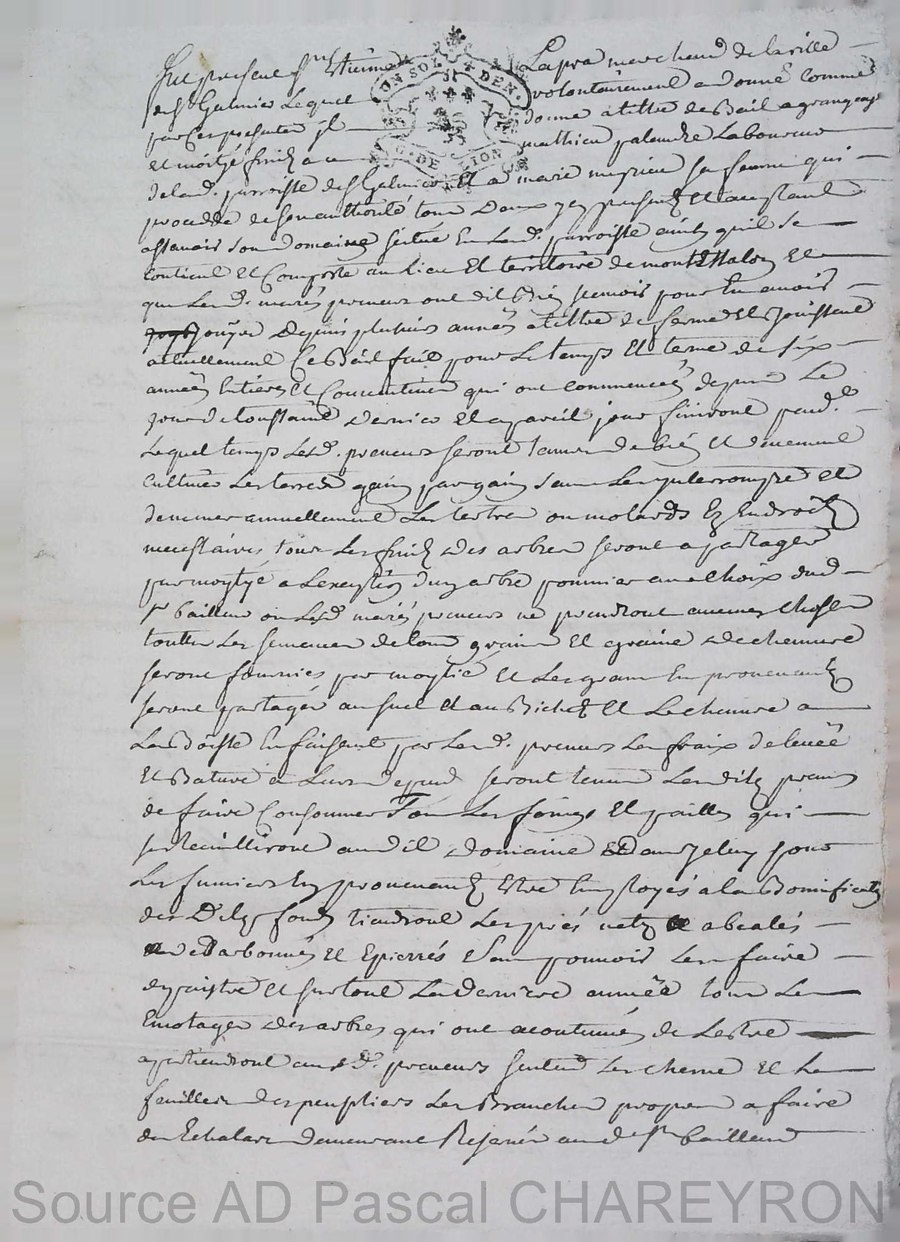 fut present sr Estienne Lapra marchand de la ville
de St Galmier Lequel volontairement a donné comme
par Ces presentes il donne a tittre de Bail a grangeage
et moitié fruits a Mathieu palandre Laboureur
de lad. parroisse de St Galmier Et a marie sa femme qui
procedde de son authorité tous Deux icy presents Et aceptant
assavoir son domaine sittué En lad. parroisse ainsy quil se
contient Et Comporte au Lieu Et territoire de Et
que Lesd. mariés preneurs ont dit Bien scavoir pour En avoir
jouyr Depuis plusieurs années a tittre de ferme Et Jouissent
actuellement Ce Bail fait pour Le temps Et terme de six
années Entieres Et Consecutives qui ont commencées depuis Le
jour de toussaint Dernier Et a pareil jour finiront pendt
Lequel temps Lesd. preneurs seront tenus de bien Et deuement
cultiver Les terres gain par gain sans Les interrompre Et
annuellement Les tertres ou molards Es Endroits
necessaires tous Les fruits des arbres seront a partager
par moytié a Lexeption dun arbre pommier au choix dud
sr bailleur ou Lesd mariés preneurs ne prendront aucunes choses
touttes Les semences de tous grains Et graine de chenevre
seront fournies par moytié Et Les grains En provenants
seront partagés au sueil Et au Bichet Et Le chenevre a
La Boiste En faisant par Lesd. preneurs Les fraix de levée
Et Bature a Leurs depends seront tenus Lesdits preneurs
de faire Consommer Tous Les foings Et pailles qui
se Recuilliront audit domaine Et dans jceluy pour
Les fumiers En provenants Estre Employés a la Bonnification
des Dits fonds tiendront Les prés nets abealés
Et Epierrés Sans pouvoir Les faire
depaistre Et surtout La derniere année tous Les
Emotages des arbres qui ont acoutumés de Lestre
apartiendront ausd. preneurs Les chesne Et La
feuillée des peupliers Les Branches propres a faire
des Echalats demeurant Reservés aud sr bailleur
UN SOL 4 DEN.
G. DE LION
Source AD Pascal CHAREYRON